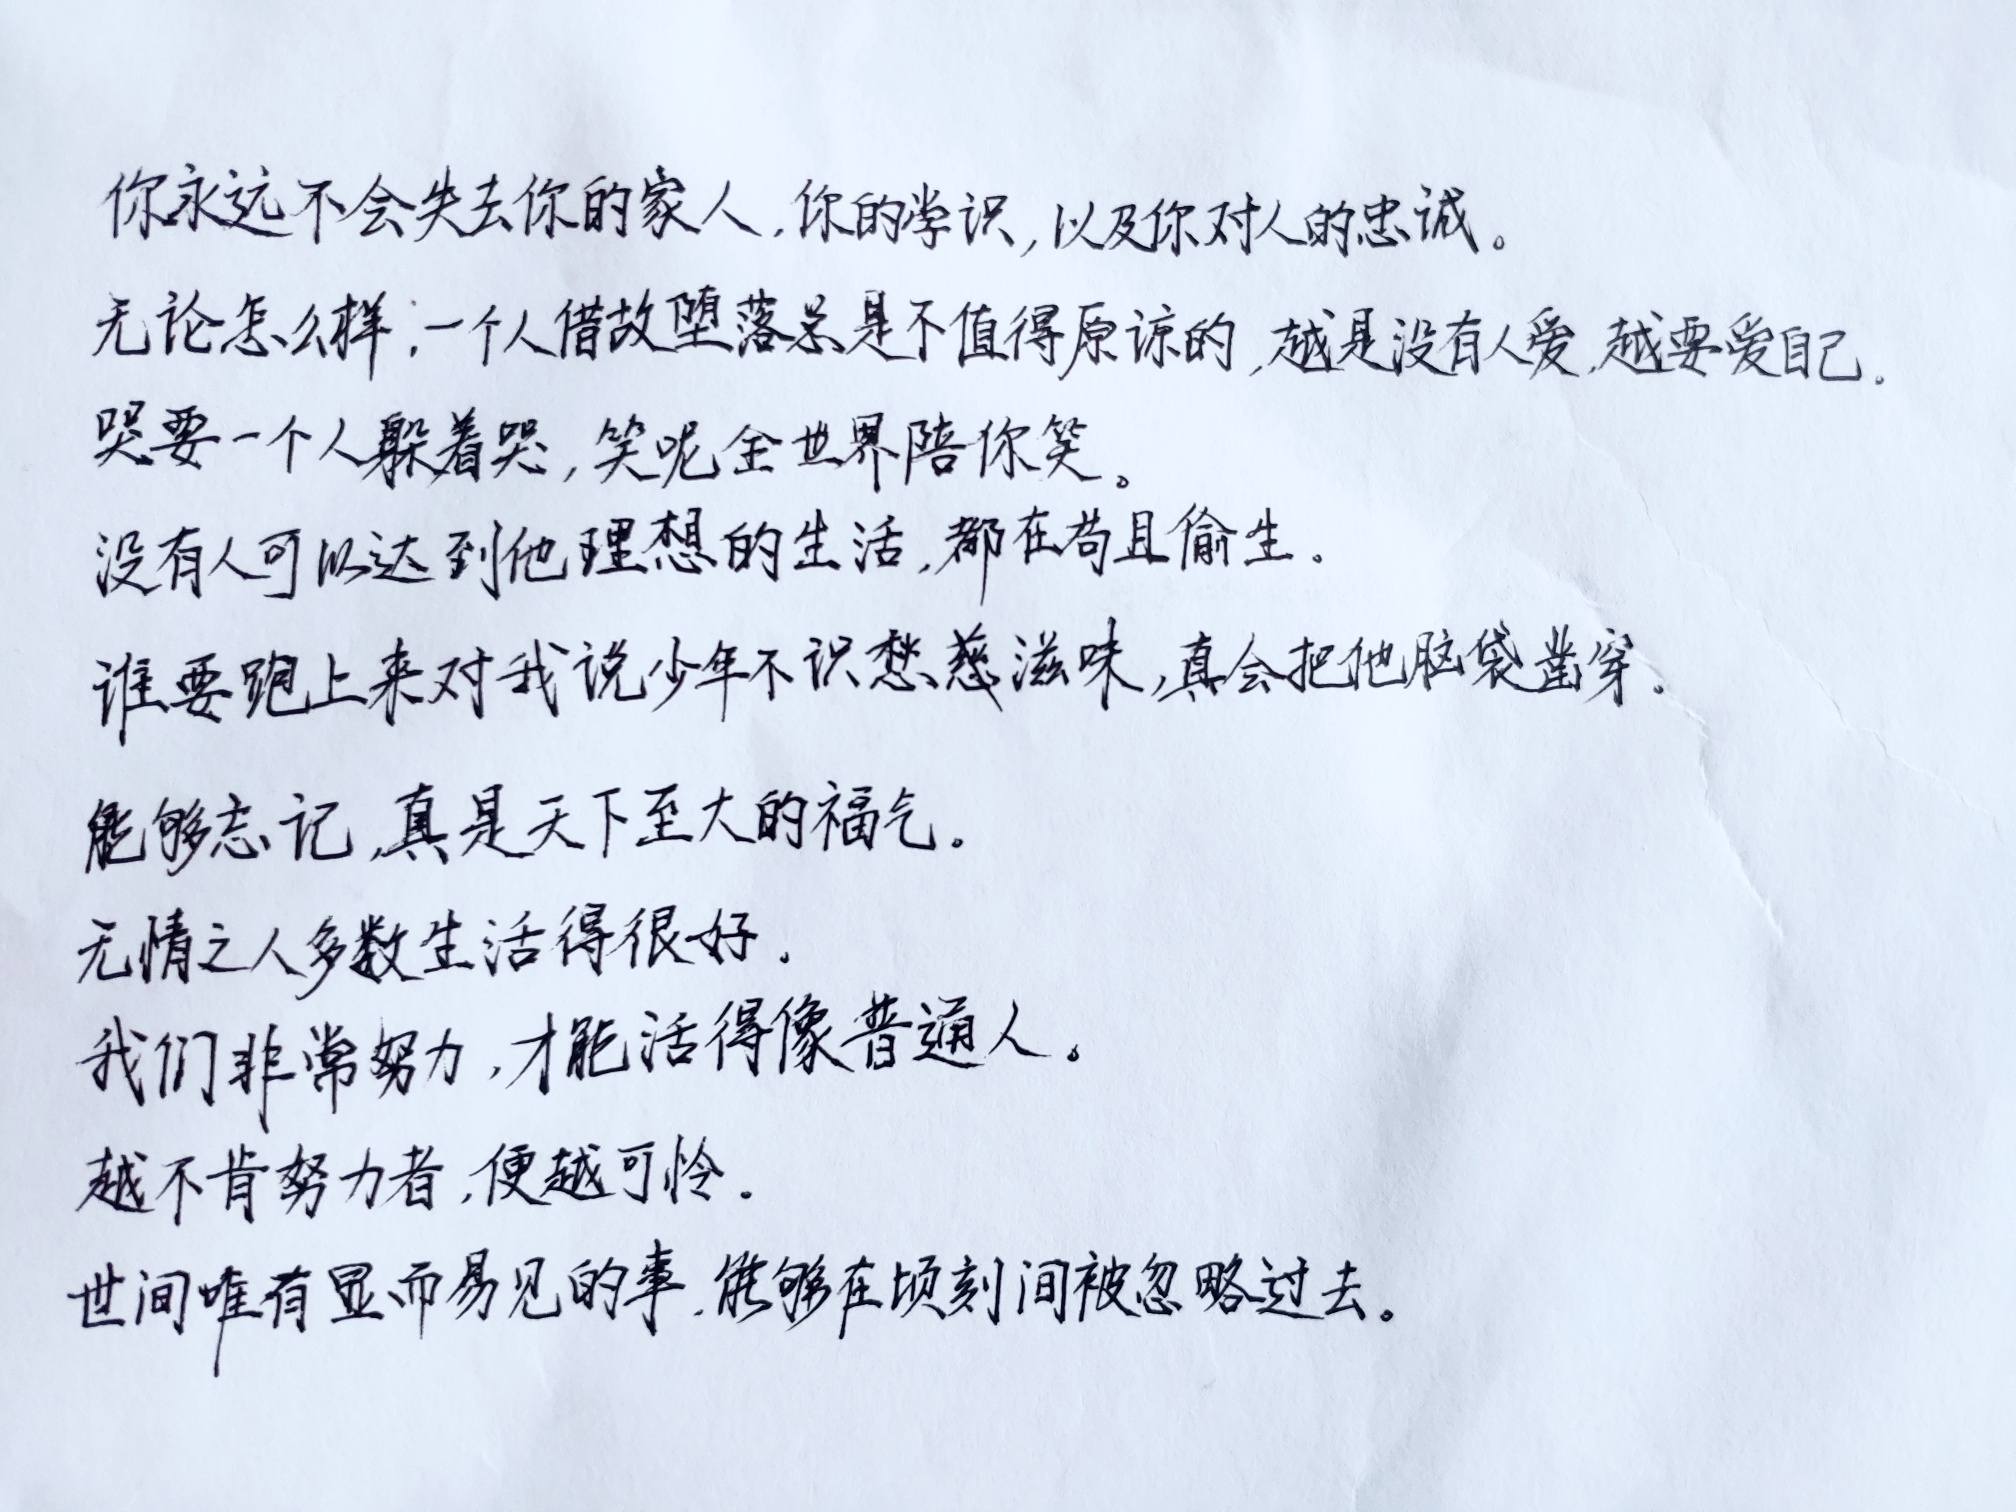 你永远不会失去你的家人，你的学识，以及你对人的忠诚。
无论怎么样，一个人借故堕落总是不值得原谅的，越是没有人爱，越要爱自己。
哭要一个人躲着哭，笑呢全世界陪你笑。
没有人可以达到他理想的生活，都在苟且偷生。
谁要跑上来对我说少年不识愁滋味，真会把他脑袋凿穿。
能够忘记，真是天下至大的福气。
无情之人多数生活得很好。
我们非常努力，才能活得像普通人。
越不肯努力者，便越可怜。
世间唯有显而易见的事，能够在顷刻间被忽略过去。